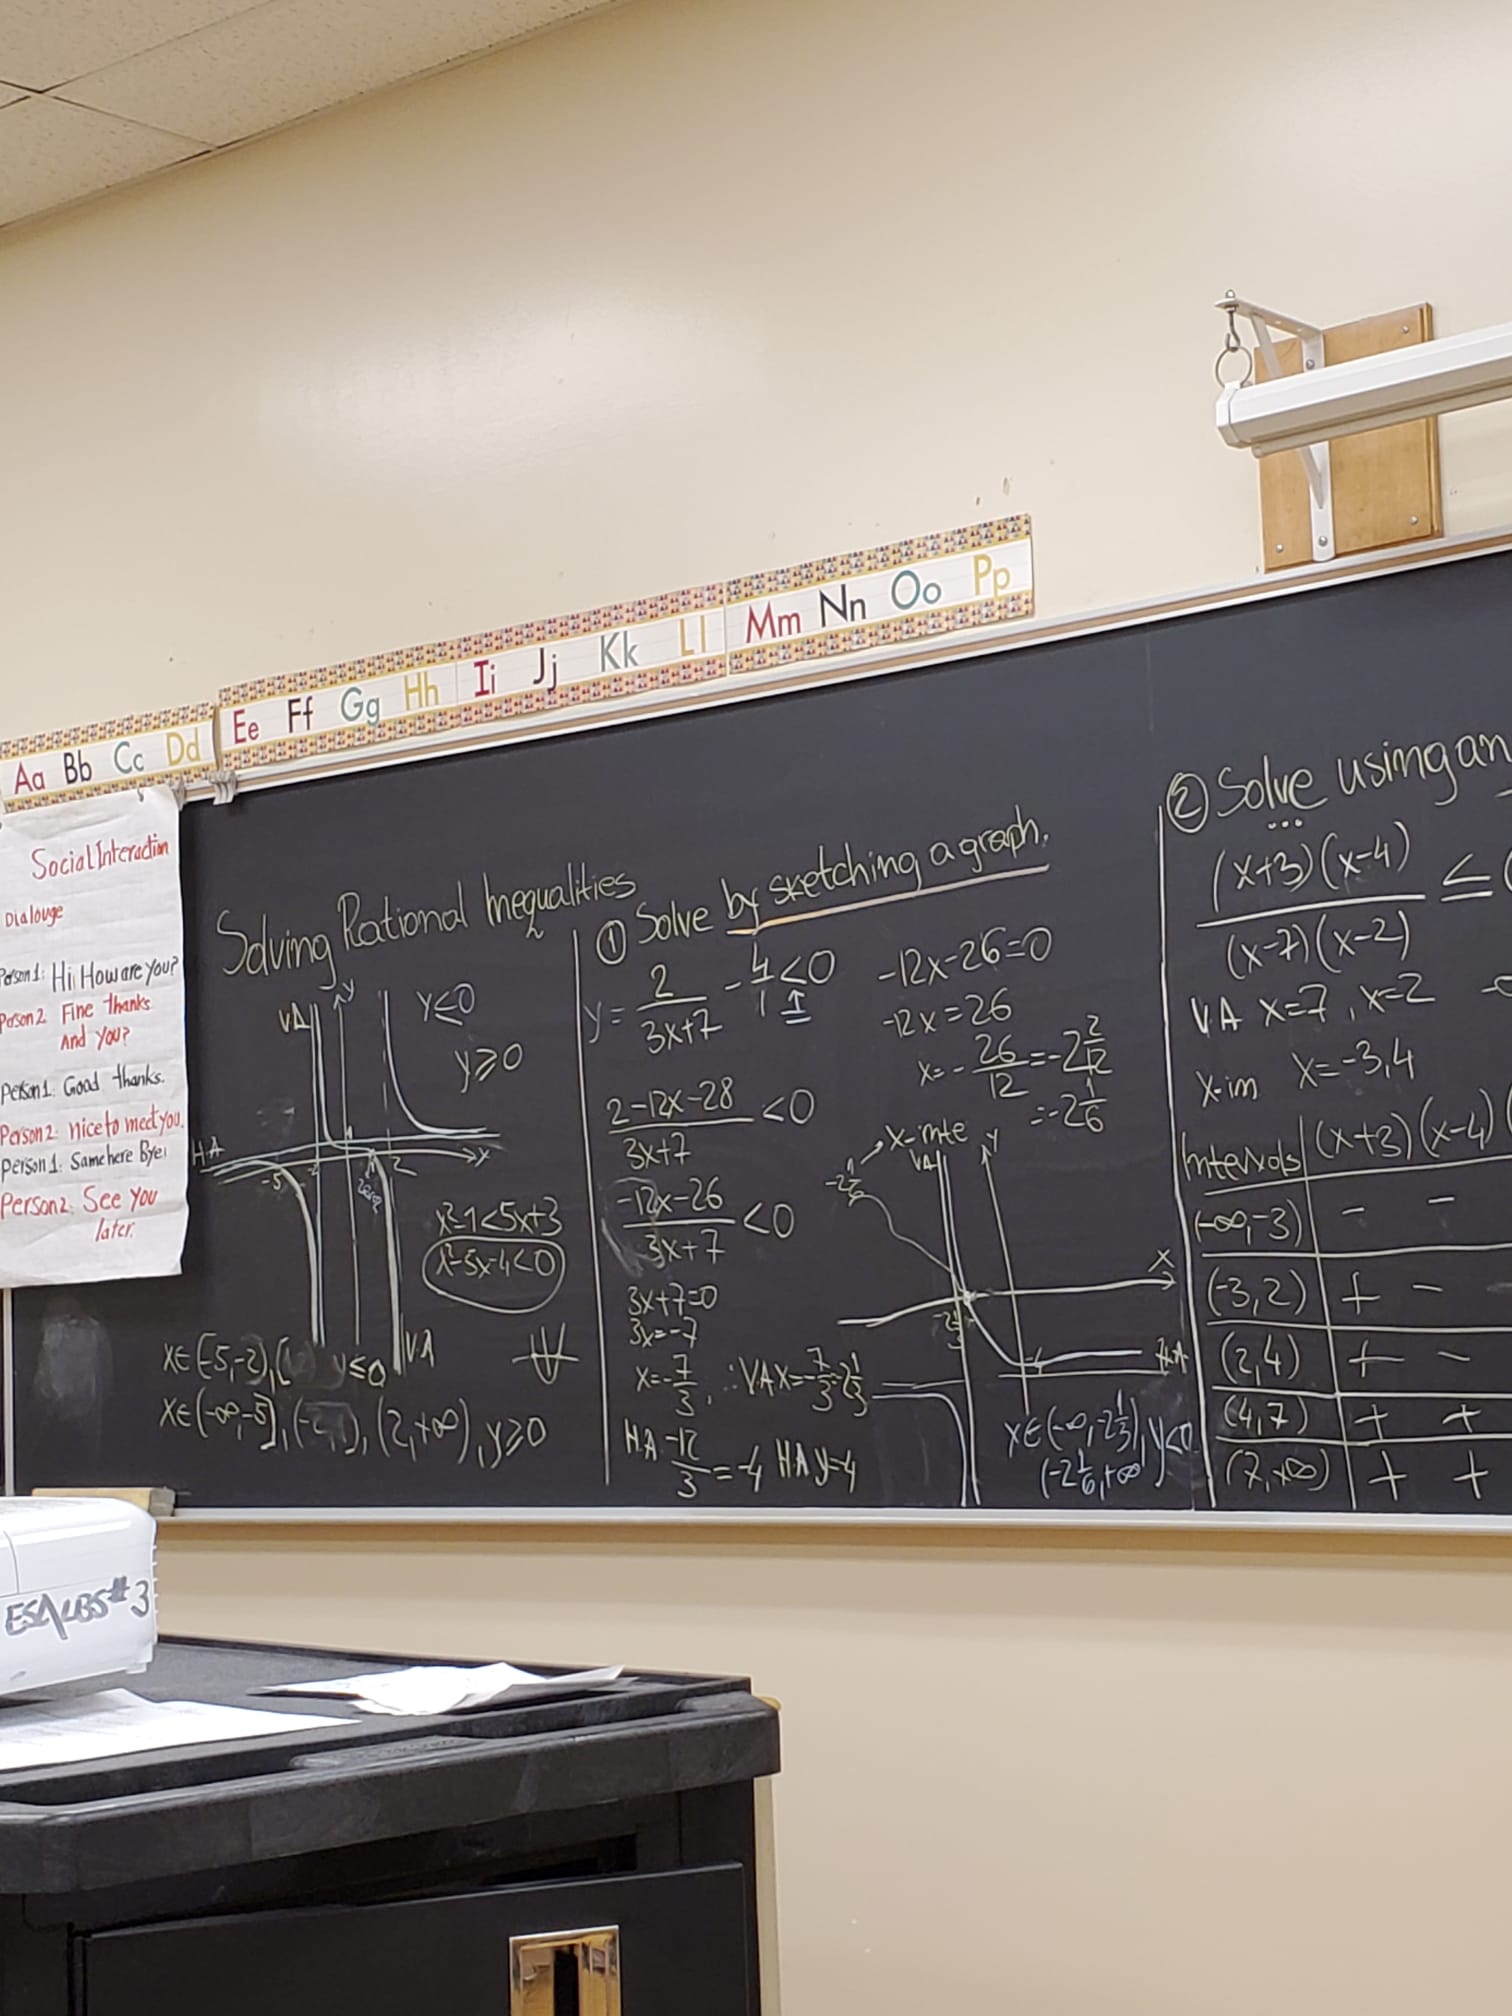 Aa Bb Cc Dd
Ee Ff Gg Hh
Ii Jj Kk Ll
Mm Nn Oo Pp
Social Interaction
Dialouge
Person 1: Hi How are you?
Person 2 Fine thanks
And you?
Person 1: Good thanks.
Person 2: nice to meet you.
Person 1: Same here Bye!
Person 2: See you
later.
Solving Rational Inequalities
VA
y
y≤0
y≥0
H.A
-5
-2
2
x
x²-1<5x+3
x²-5x-4<0
VA
y≤0
x∈(-∞,-5],
(2,+∞), y≥0
① Solve by sketching a graph.
y = 2/(3x+7) - 4/1 <0
(2-12x-28)/(3x+7) <0
(-12x-26)/(3x+7) <0
3x+7=0
3x=-7
x=-7/3, ∴VA x=-7/3=-2 1/3
H.A -12/3 = -4 HA y=-4
-12x-26=0
-12x=26
x=-26/12=-2 2/12
=-2 1/6
x-inte
-2 1/6
VA
y
x
-2 1/3
-4
H.A
x∈(-∞,-2 1/3), y<0
(-2 1/6,+∞)
② Solve using an
(x+3)(x-4)/(x-7)(x-2) ≤
VA x=7, x=2
x-in x=-3,4
Intervals (x+3) (x-4)
(-∞,-3) - -
(-3,2) + -
(2,4) + -
(4,7) + +
(7,+∞) + +
ESL/LBS #3